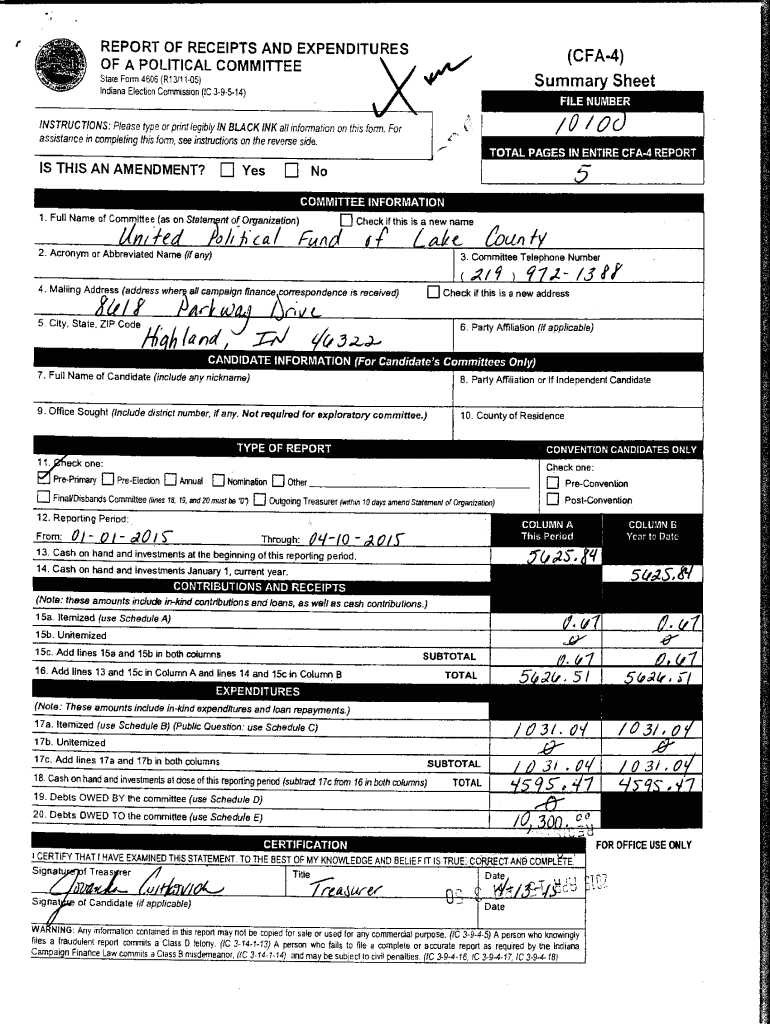 REPORT OF RECEIPTS AND EXPENDITURES
OF A POLITICAL COMMITTEE
State Form 4606 (R13/11-05)
Indiana Election Commission (IC 3-9-5-14)
(CFA-4)
Summary Sheet
FILE NUMBER
10100
INSTRUCTIONS: Please type or print legibly IN BLACK INK all information on this form. For
assistance in completing this form, see instructions on the reverse side.
TOTAL PAGES IN ENTIRE CFA-4 REPORT
5
IS THIS AN AMENDMENT? Yes No
COMMITTEE INFORMATION
1. Full Name of Committee (as on Statement of Organization) Check if this is a new name
United Political Fund of Lake County
2. Acronym or Abbreviated Name (if any) 3. Committee Telephone Number
(219) 972-1388
4. Mailing Address (address where all campaign finance correspondence is received) Check if this is a new address
8618 Parkway Drive
5. City, State, ZIP Code 6. Party Affiliation (if applicable)
Highland, IN 46322
CANDIDATE INFORMATION (For Candidate's Committees Only)
7. Full Name of Candidate (include any nickname) 8. Party Affiliation or If Independent Candidate
9. Office Sought (Include district number, if any. Not required for exploratory committee.) 10. County of Residence
TYPE OF REPORT CONVENTION CANDIDATES ONLY
11. Check one: Check one:
Pre-Primary Pre-Election Annual Nomination Other Pre-Convention
Final/Disbands Committee (lines 18, 19, and 20 must be "0") Outgoing Treasurer (within 10 days amend Statement of Organization) Post-Convention
12. Reporting Period: COLUMN A COLUMN B
From: 01-01-2015 Through: 04-10-2015 This Period Year to Date
13. Cash on hand and investments at the beginning of this reporting period. 5625.84
14. Cash on hand and investments January 1, current year. 5625.84
CONTRIBUTIONS AND RECEIPTS
(Note: these amounts include in-kind contributions and loans, as well as cash contributions.)
15a. Itemized (use Schedule A) 0.67 0.67
15b. Unitemized 0 0
15c. Add lines 15a and 15b in both columns SUBTOTAL 0.67 0.67
16. Add lines 13 and 15c in Column A and lines 14 and 15c in Column B TOTAL 5626.51 5626.51
EXPENDITURES
(Note: These amounts include in-kind expenditures and loan repayments.)
17a. Itemized (use Schedule B) (Public Question: use Schedule C) 1031.04 1031.04
17b. Unitemized 0 0
17c. Add lines 17a and 17b in both columns SUBTOTAL 1031.04 1031.04
18. Cash on hand and investments at close of this reporting period (subtract 17c from 16 in both columns) TOTAL 4595.47 4595.47
19. Debts OWED BY the committee (use Schedule D) 0
20. Debts OWED TO the committee (use Schedule E) 10,300.00
CERTIFICATION FOR OFFICE USE ONLY
I CERTIFY THAT I HAVE EXAMINED THIS STATEMENT. TO THE BEST OF MY KNOWLEDGE AND BELIEF IT IS TRUE, CORRECT AND COMPLETE.
Signature of Treasurer Title Date
Treasurer 4-13-15
Signature of Candidate (if applicable) Date
WARNING: Any information contained in this report may not be copied for sale or used for any commercial purpose. (IC 3-9-4-5) A person who knowingly
files a fraudulent report commits a Class D felony. (IC 3-14-1-13) A person who fails to file a complete or accurate report as required by the Indiana
Campaign Finance Law commits a Class B misdemeanor, (IC 3-14-1-14) and may be subject to civil penalties. (IC 3-9-4-16, IC 3-9-4-17, IC 3-9-4-18)